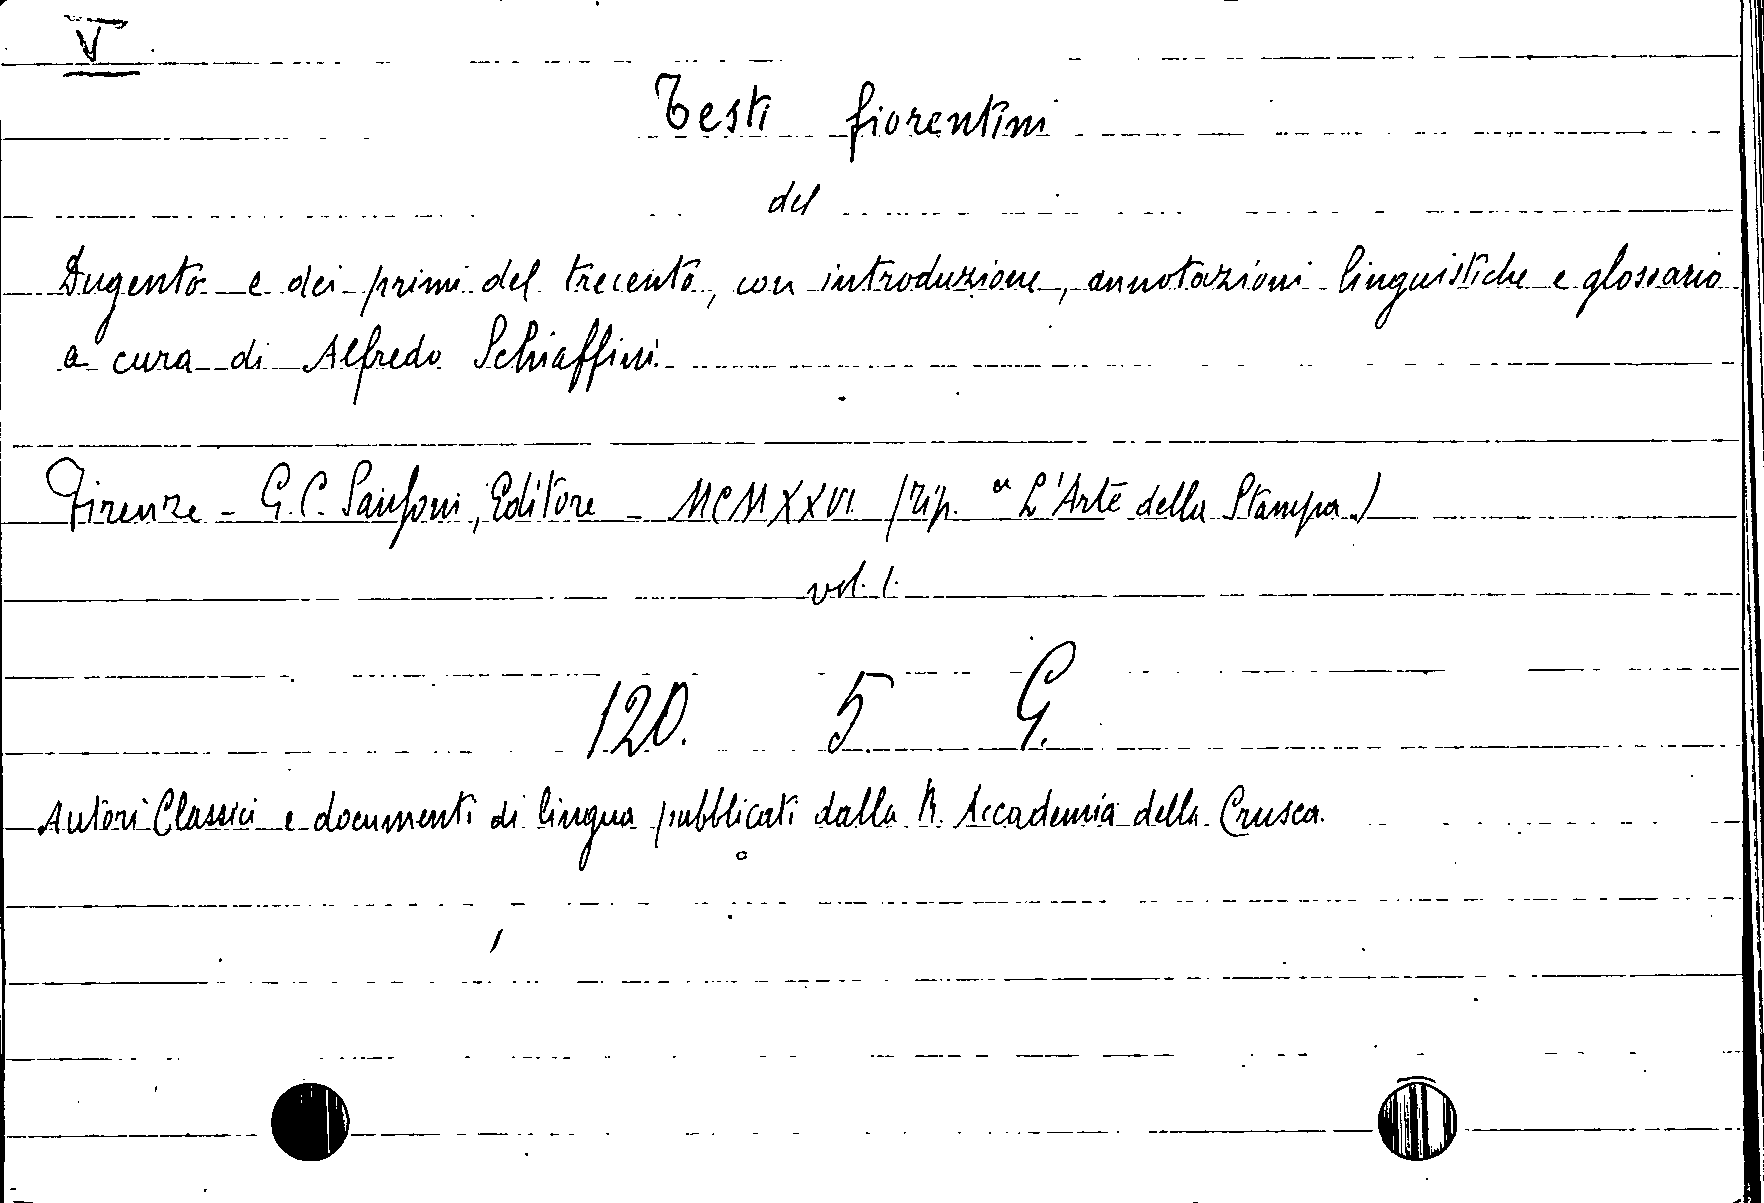 V
Testi fiorentini
del
Dugento e dei primi del trecento, con introduzione, annotazioni linguistiche e glossario
a cura di Alfredo Schiaffini.
Firenze - G. C. Sansoni, Editore - MCMXXVI (Tip. "L'Arte della Stampa.)
vol. 1.
120. 5. G.
Autori Classici e documenti di lingua pubblicati dalla R. Accademia della Crusca.